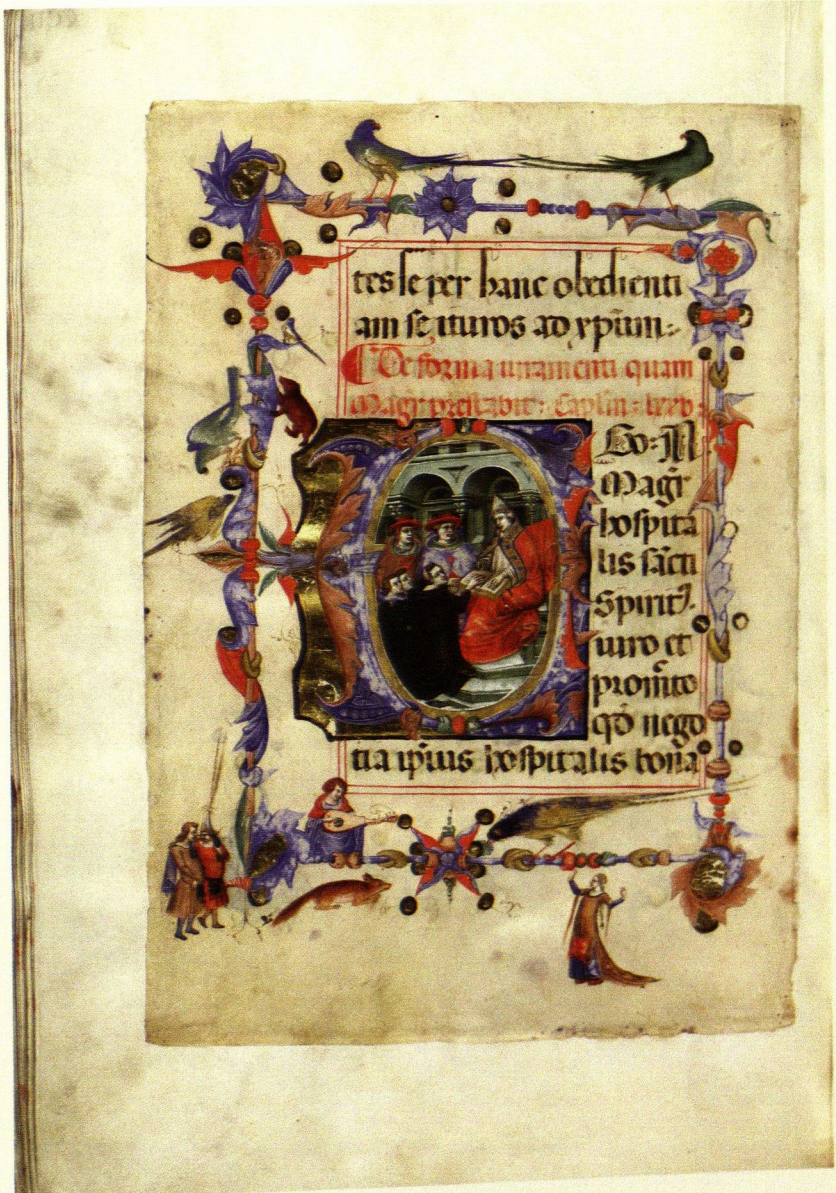 tes se per hanc obedienti
am se ituros ad xp̄ium:
De forma iuramenti quam
Magr̄ prestabit: Caplm̄: lxxv:
EGo: N
Magr̄
hospita
lis sācti
Spirit᾿.
iuro et
promĩto
qđ nego
tia ip̄ius hospitalis bona